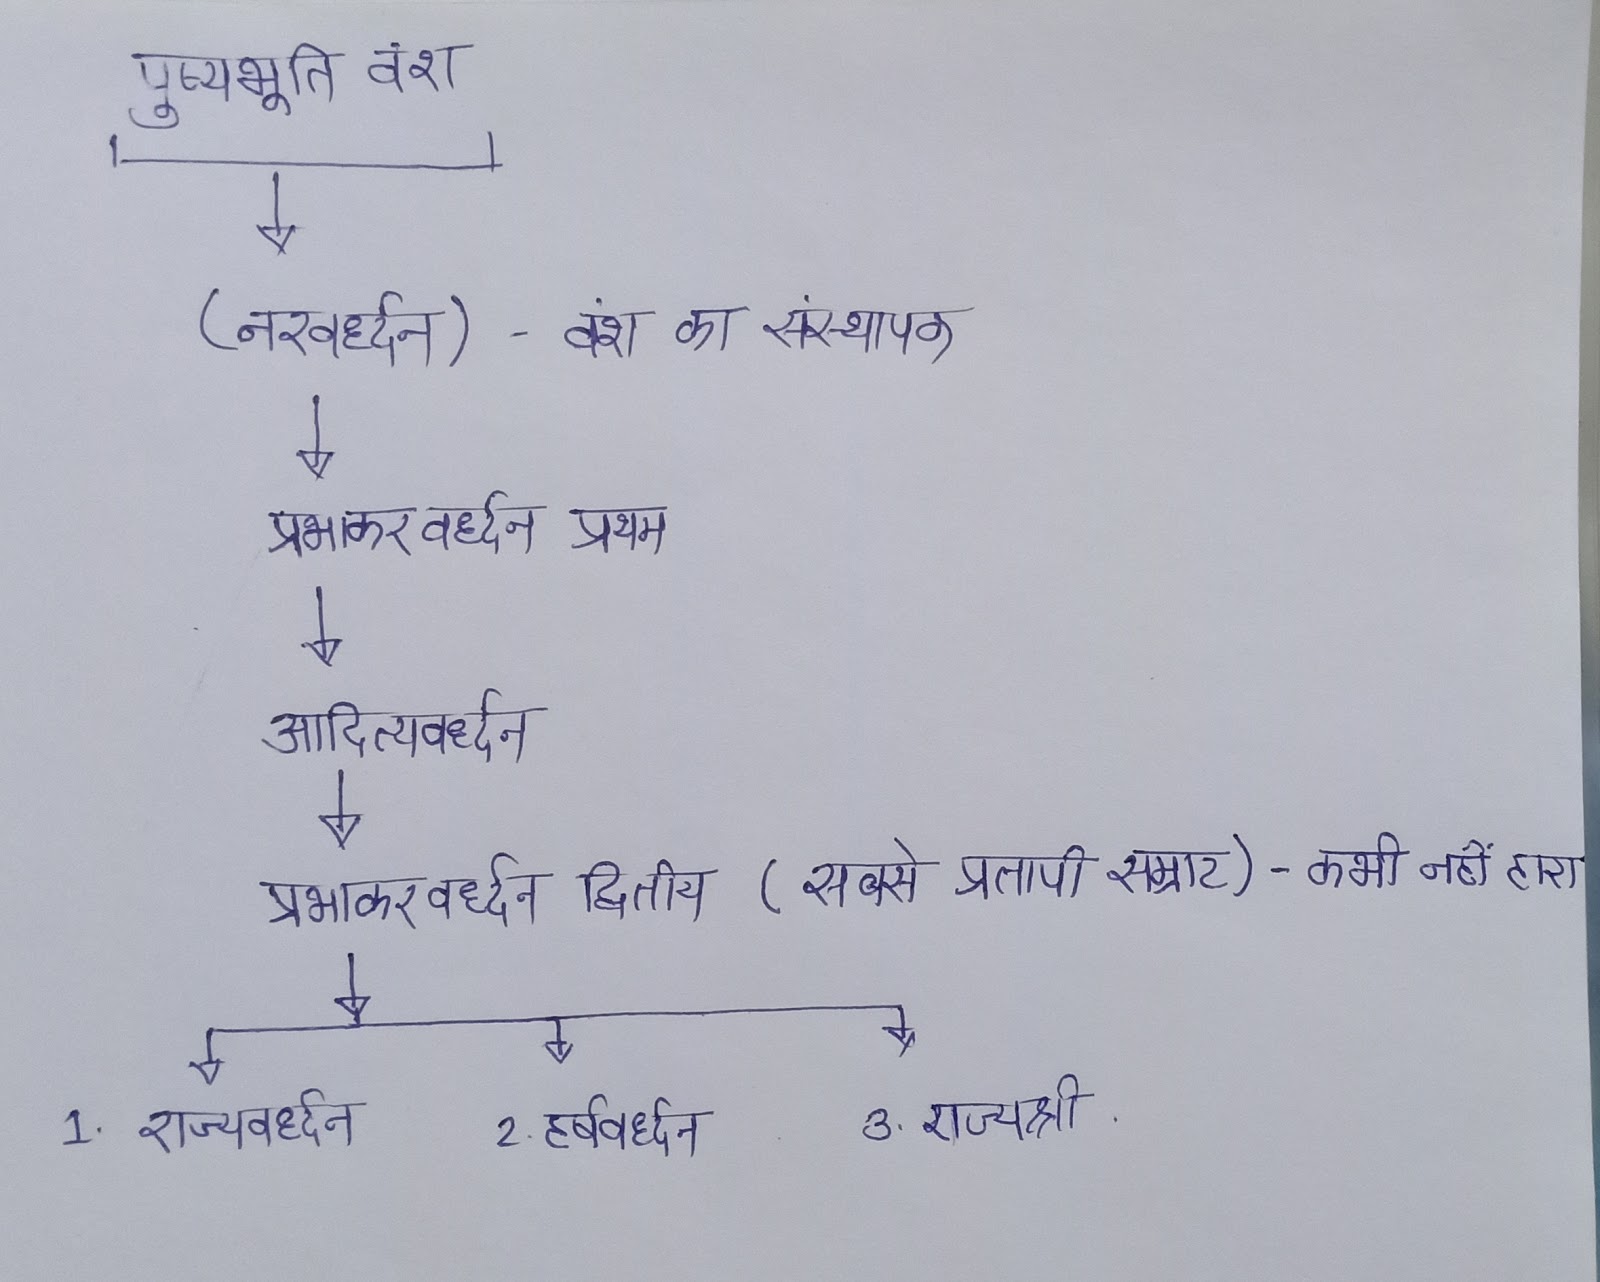 पुष्यभूति वंश
(नरवर्ध्दन) - वंश का संस्थापक
प्रभाकरवर्ध्दन प्रथम
आदित्यवर्ध्दन
प्रभाकरवर्ध्दन द्वितीय (सबसे प्रतापी सम्राट) - कभी नहीं हारा
1. राज्यवर्ध्दन 2. हर्षवर्ध्दन 3. राज्यश्री.